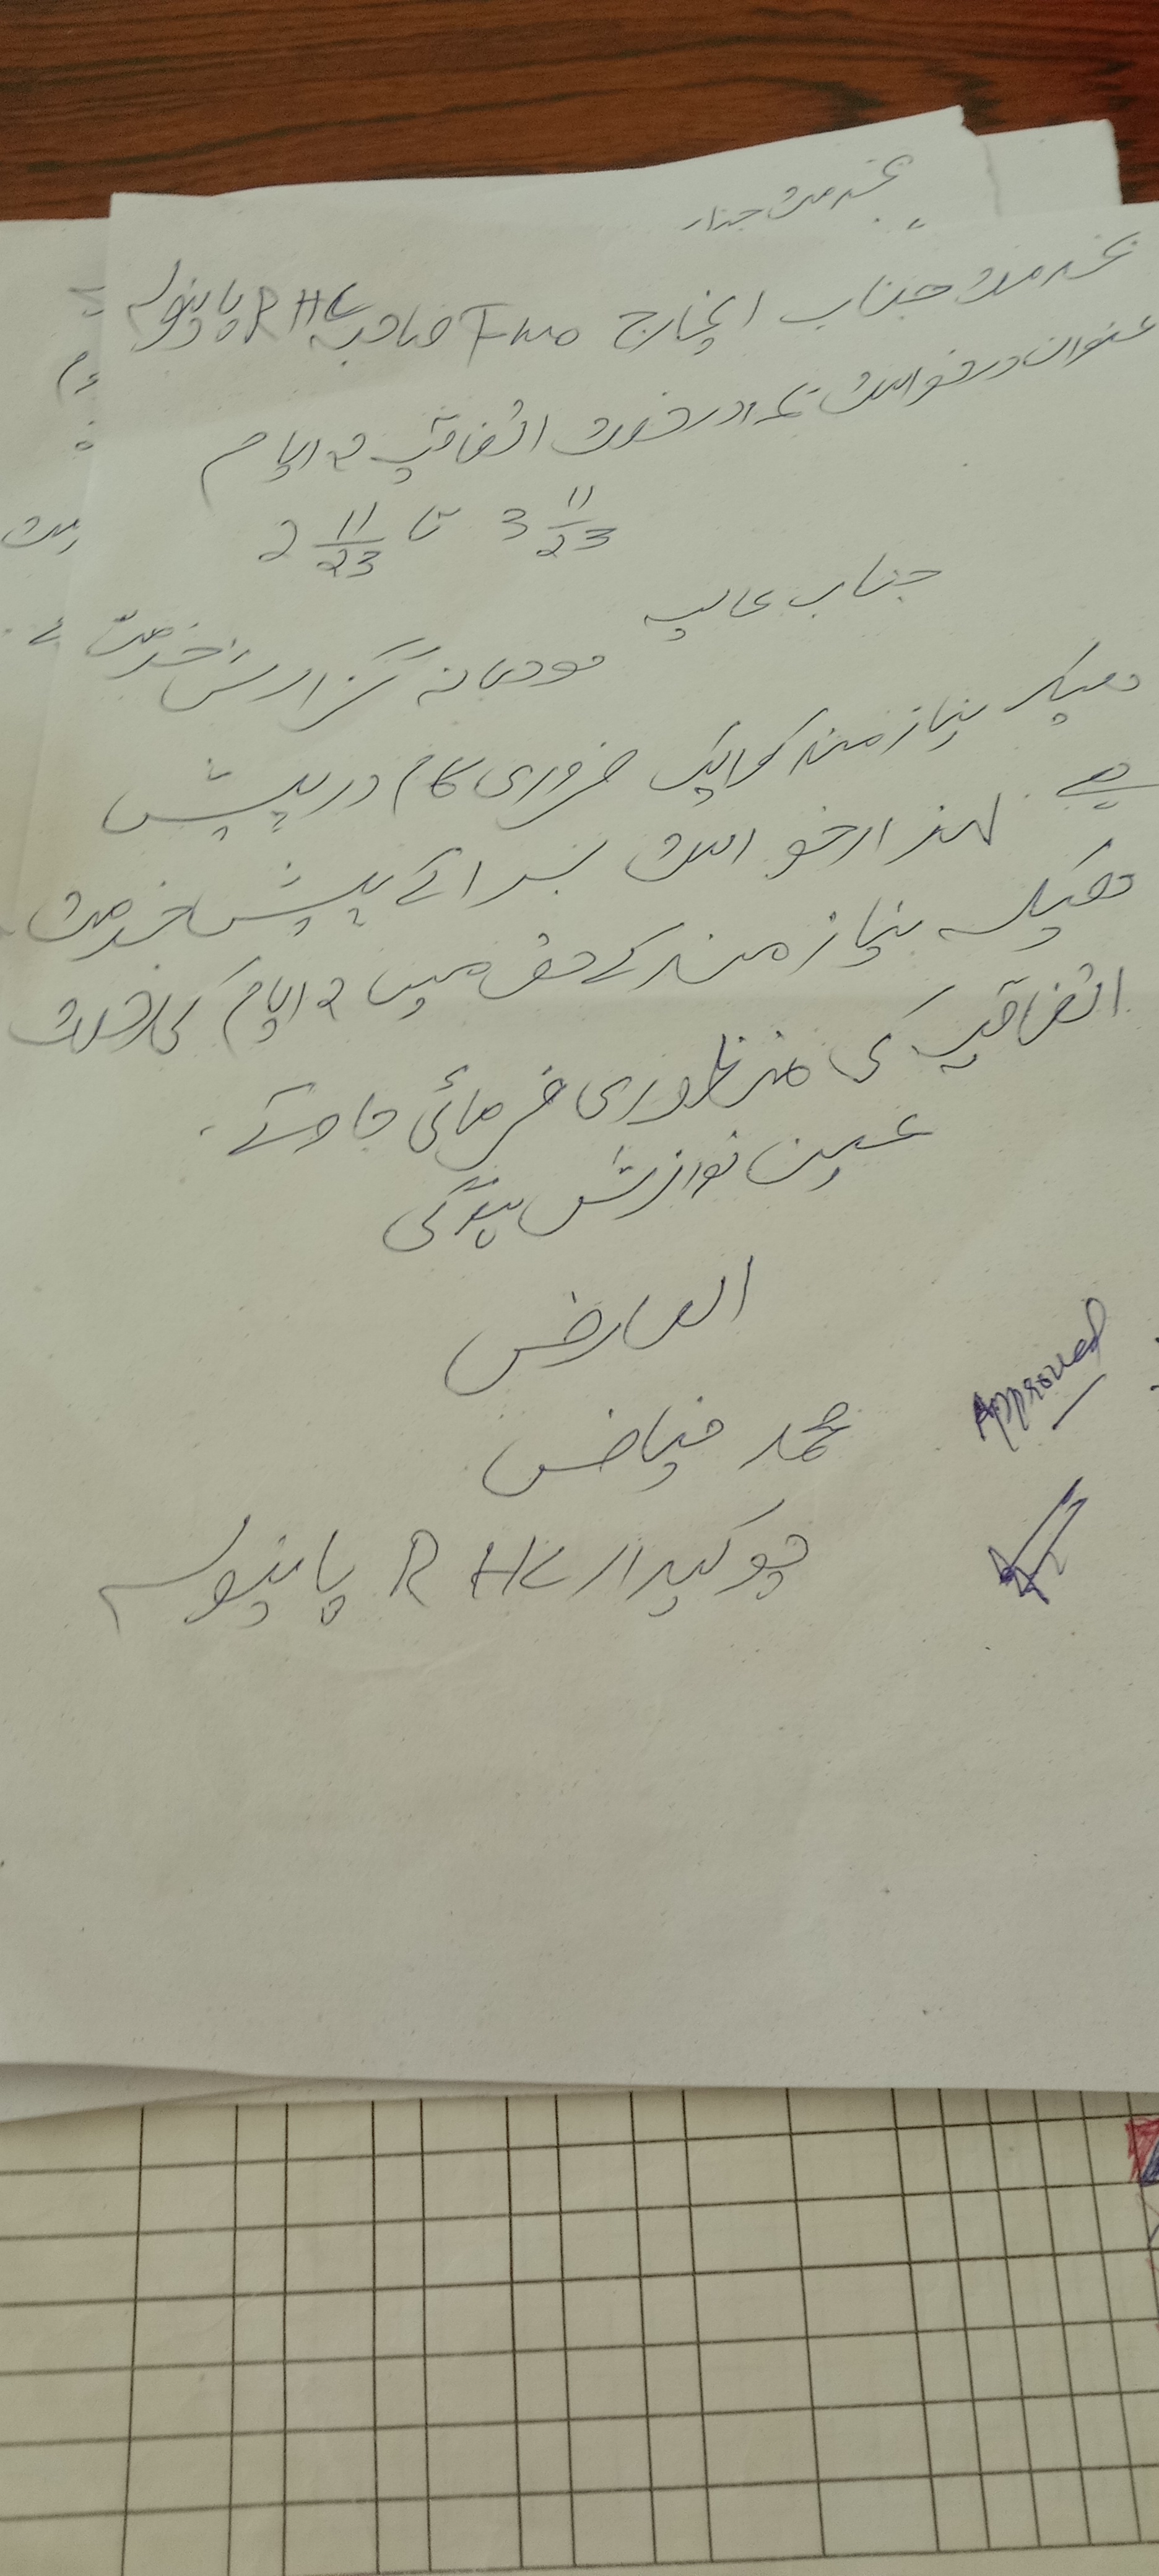 بخدمت جناب
بخدمت جناب انچارج FMO صاحبہ RHC پاہنولہ
عنوان درخواست بمراد رخصت اتفاقیہ 2 ایام
2 11/23 تا 3 11/23
جناب عالیہ
مودبانہ گزارش خدمت ہے
کہ نیازمند کو ایک ضروری کام درپیش
ہے لہذا درخواست برائے پیش خدمت
ہے کہ نیازمند کے حق میں 2 ایام کی رخصت
اتفاقیہ کی منظوری فرمائی جاوے۔
عین نوازش ہوگی
العارض
محمد فیاض
چوکیدار RHC پاہنولہ
Approved